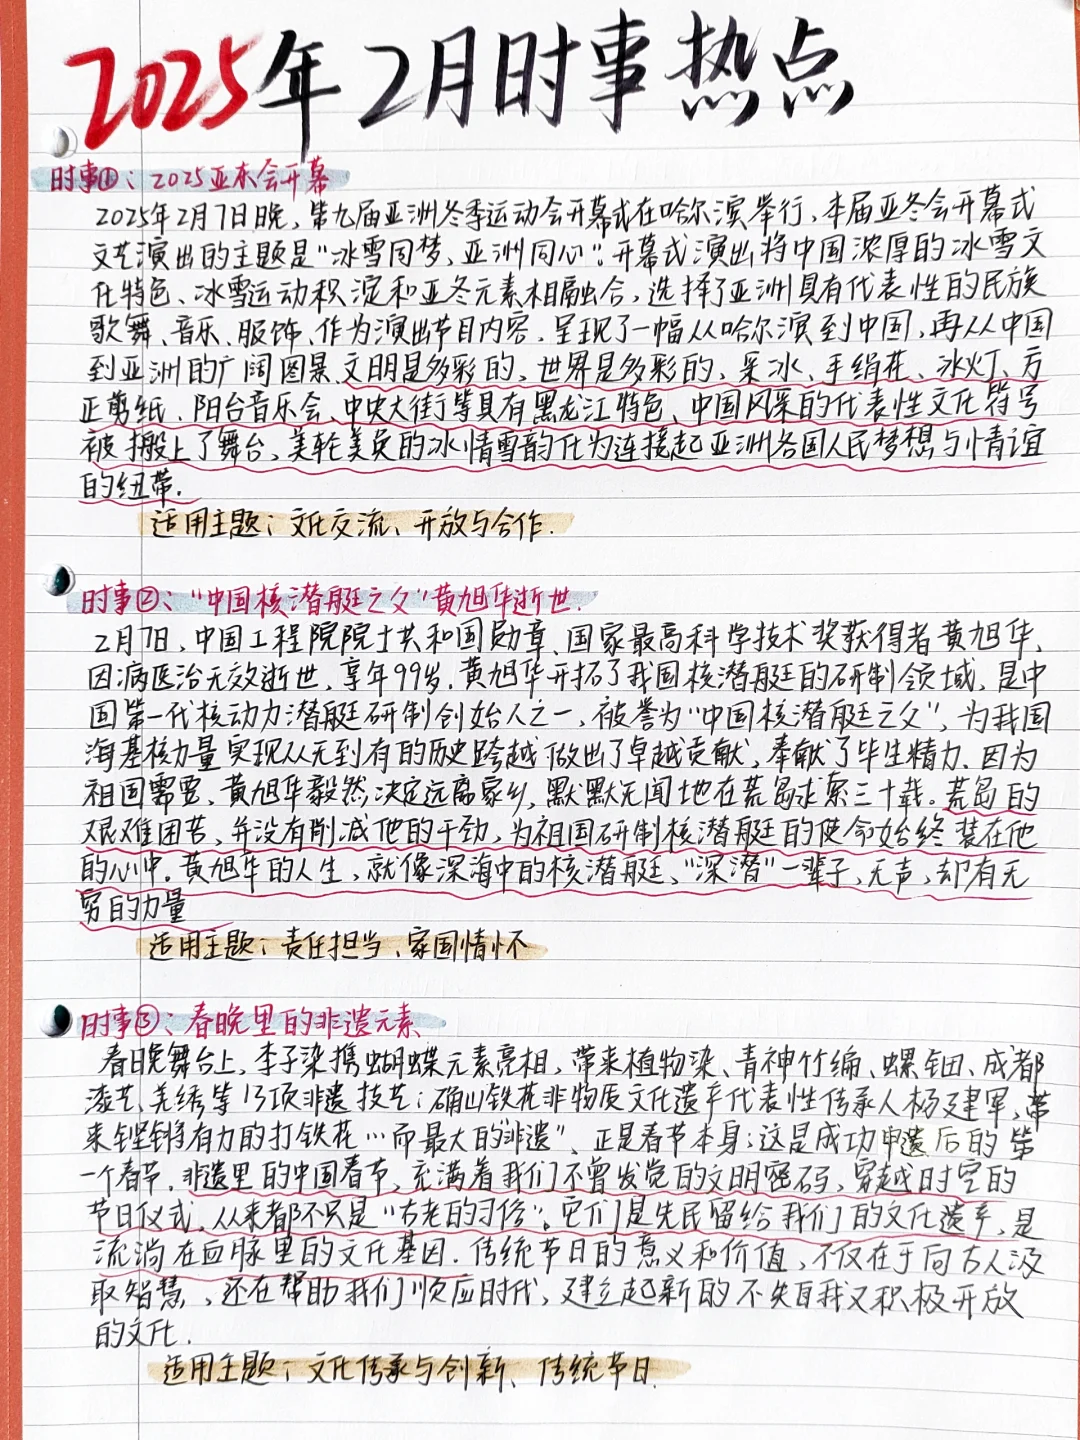 2025年2月时事热点
时事①：2025亚冬会开幕
2025年2月7日晚，第九届亚洲冬季运动会开幕式在哈尔滨举行，本届亚冬会开幕式
文艺演出的主题是“冰雪同梦、亚洲同心”。开幕式演出将中国浓厚的冰雪文
化特色、冰雪运动积淀和亚冬元素相融合，选择了亚洲具有代表性的民族
歌舞、音乐、服饰、作为演出节目内容，呈现了一幅从哈尔滨到中国，再从中国
到亚洲的广阔图景.文明是多彩的，世界是多彩的，采冰、手绢花、冰灯、方
正剪纸、阳台音乐会、中央大街等具有黑龙江特色、中国风采的代表性文化符号
被搬上了舞台，美轮美奂的冰情雪韵化为连接起亚洲各国人民梦想与情谊
的纽带.
适用主题：文化交流、开放与合作.
时事②：“中国核潜艇之父”黄旭华逝世.
2月7日，中国工程院院士共和国勋章、国家最高科学技术奖获得者黄旭华，
因病医治无效逝世，享年99岁.黄旭华开拓了我国核潜艇的研制领域，是中
国第一代核动力潜艇研制创始人之一，被誉为“中国核潜艇之父”，为我国
海基核力量实现从无到有的历史跨越做出了卓越贡献，奉献了毕生精力.因为
祖国需要，黄旭华毅然决定远离家乡，默默无闻地在荒岛求索三十载。荒岛的
艰难困苦，并没有削减他的干劲，为祖国研制核潜艇的使命始终装在他
的心中.黄旭华的人生，就像深海中的核潜艇，“深潜”一辈子，无声，却有无
穷的力量
适用主题：责任担当、家国情怀
时事③：春晚里的非遗元素
春日晚舞台上，李子染携蝴蝶元素亮相，带来植物染、青神竹编、螺钿、成都
漆艺、羌绣等13项非遗技艺；确山铁花非物质文化遗产代表性传承人杨建军，带
来铿锵有力的打铁花…而最大的“非遗”、正是春节本身：这是成功申遗后的第
一个春节.非遗里的中国春节，充满着我们不曾发觉的文明密码，穿越时空的
节日仪式，从来都不只是“古老的习俗”。它们是先民留给我们的文化遗产，是
流淌在血脉里的文化基因.传统节日的意义和价值，不仅在于向古人汲
取智慧，还在帮助我们顺应时代，建立起新的不失自我又积极开放
的文化.
适用主题：文化传承与创新、传统节日.